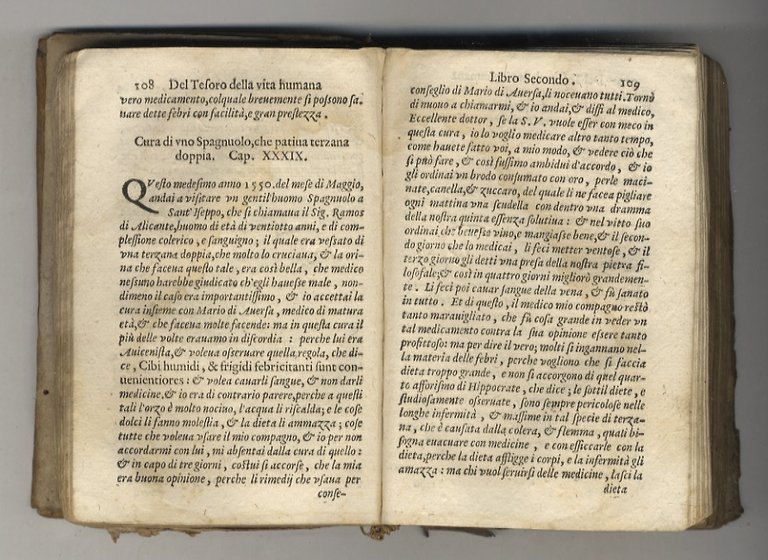 108 Del Tesoro della vita humana
vero medicamento, colquale breuemente si possono sa-
nare dette febri con facilità, e gran prestezza.
Cura di vno Spagnuolo, che patiua terzana
doppia. Cap. XXXIX.
QVesto medesimo anno 1550. del mese di Maggio,
andai a visitare vn gentil'huomo Spagnuolo a
Sant'Iseppo, che si chiamaua il Sig. Ramos
di Alicante, huomo di età di ventiotto anni, e di com-
plessione colerico, e sanguigno; il quale era vessato di
vna terzana doppia, che molto lo cruciaua, & la ori-
na che faceua questo tale, era così bella, che medico
nessuno harebbe giudicato ch'egli hauesse male, non-
dimeno il caso era importantissimo, & io accettai la
cura insieme con Mario di Auersa, medico di matura
età, & che faceua molte facende: ma in questa cura il
più delle volte erauamo in discordia: perche lui era
Auicenista, & voleua osseruare quella regola, che di-
ce, Cibi humidi, & frigidi febricitanti sunt con-
uenientiores: & volea cauarli sangue, & non darli
medicine. & io era di contrario parere, perche a questi
tali l'orzo è molto nociuo, l'acqua li riscalda; e le cose
dolci li fanno molestia, & la dieta li ammazza; cose
tutte che voleua vsare il mio compagno, & io per non
accordarmi con lui, mi absentai dalla cura di quello:
& in capo di tre giorni, costui si accorse, che la mia
era buona opinione, perche li rimedij che vsaua per
conse-
Libro Secondo. 109
conseglio di Mario di Auersa, li noceuano tutti. Tornò
di nuouo a chiamarmi, & io andai, & dissi al medico,
Eccellente dottor, se la S. V. vuole esser con meco in
questa cura, io lo voglio medicare altro tanto tempo,
come hauete fatto voi, a mio modo, & vedere ciò che
si può fare, & così fussimo ambidui d'accordo, & io
gli ordinai vn brodo consumato con oro, perle maci-
nate, canella, & zuccaro, del quale li ne facea pigliare
ogni mattina vna scudella con dentro vna dramma
della nostra quinta essenza solutiua: & nel vitto suo
ordinai che beuesse vino, e mangiasse bene, & il secon-
do giorno che lo medicai, li feci metter ventose, & il
terzo giorno gli detti vna presa della nostra pietra fi-
losofale; & così in quattro giorni migliorò grandemen-
te. Li feci poi cauar sangue della vena, & fù sanato
in tutto. Et di questo, il medico mio compagno restò
tanto marauigliato, che fù cosa grande in veder vn
tal medicamento contra la sua opinione essere tanto
profittoso: ma per dire il vero; molti si ingannano nel-
la materia delle febri, perche vogliono che si faccia
dieta troppo grande, e non si accorgono di quel quar-
to afforismo di Hippocrate, che dice; le sottil diete, e
studiosamente osseruate, sono sempre pericolose nelle
longhe infermità, & massime in tal specie di terza-
na, che è causata dalla colera, & flemma, quali bi-
sogna euacuare con medicine, e con essiccarle con la
dieta, perche la dieta affligge i corpi, e la infermità gli
amazza: ma chi vuol seruirsi delle medicine, lasci la
dieta